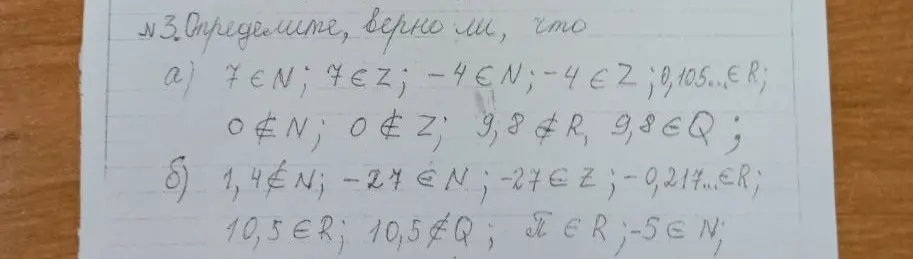 №3. Определите, верно ли, что
а) 7 ∈ N; 7 ∈ Z; -4 ∈ N; -4 ∈ Z; 0,105... ∈ R;
0 ∉ N; 0 ∉ Z; 9,8 ∉ R, 9,8 ∈ Q;
б) 1,4 ∉ N; -27 ∈ N; -27 ∈ Z; -0,217... ∈ R;
10,5 ∈ R; 10,5 ∉ Q; π ∈ R; -5 ∈ N;